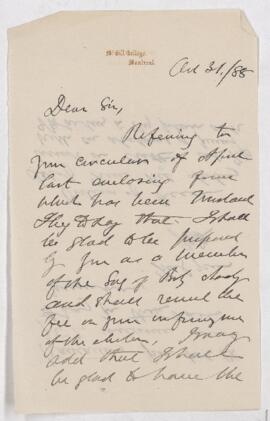 McGill College,
Montreal.
Oct 31./88
Dear Sir,
Referring to
your circular of April
last enclosing form
which has been
I beg to say that I shall
be glad to be proposed
by you as a member
of the Soc of
and shall remit the
fee on your informing me
of the election, I may
add that I shall
be glad to have the